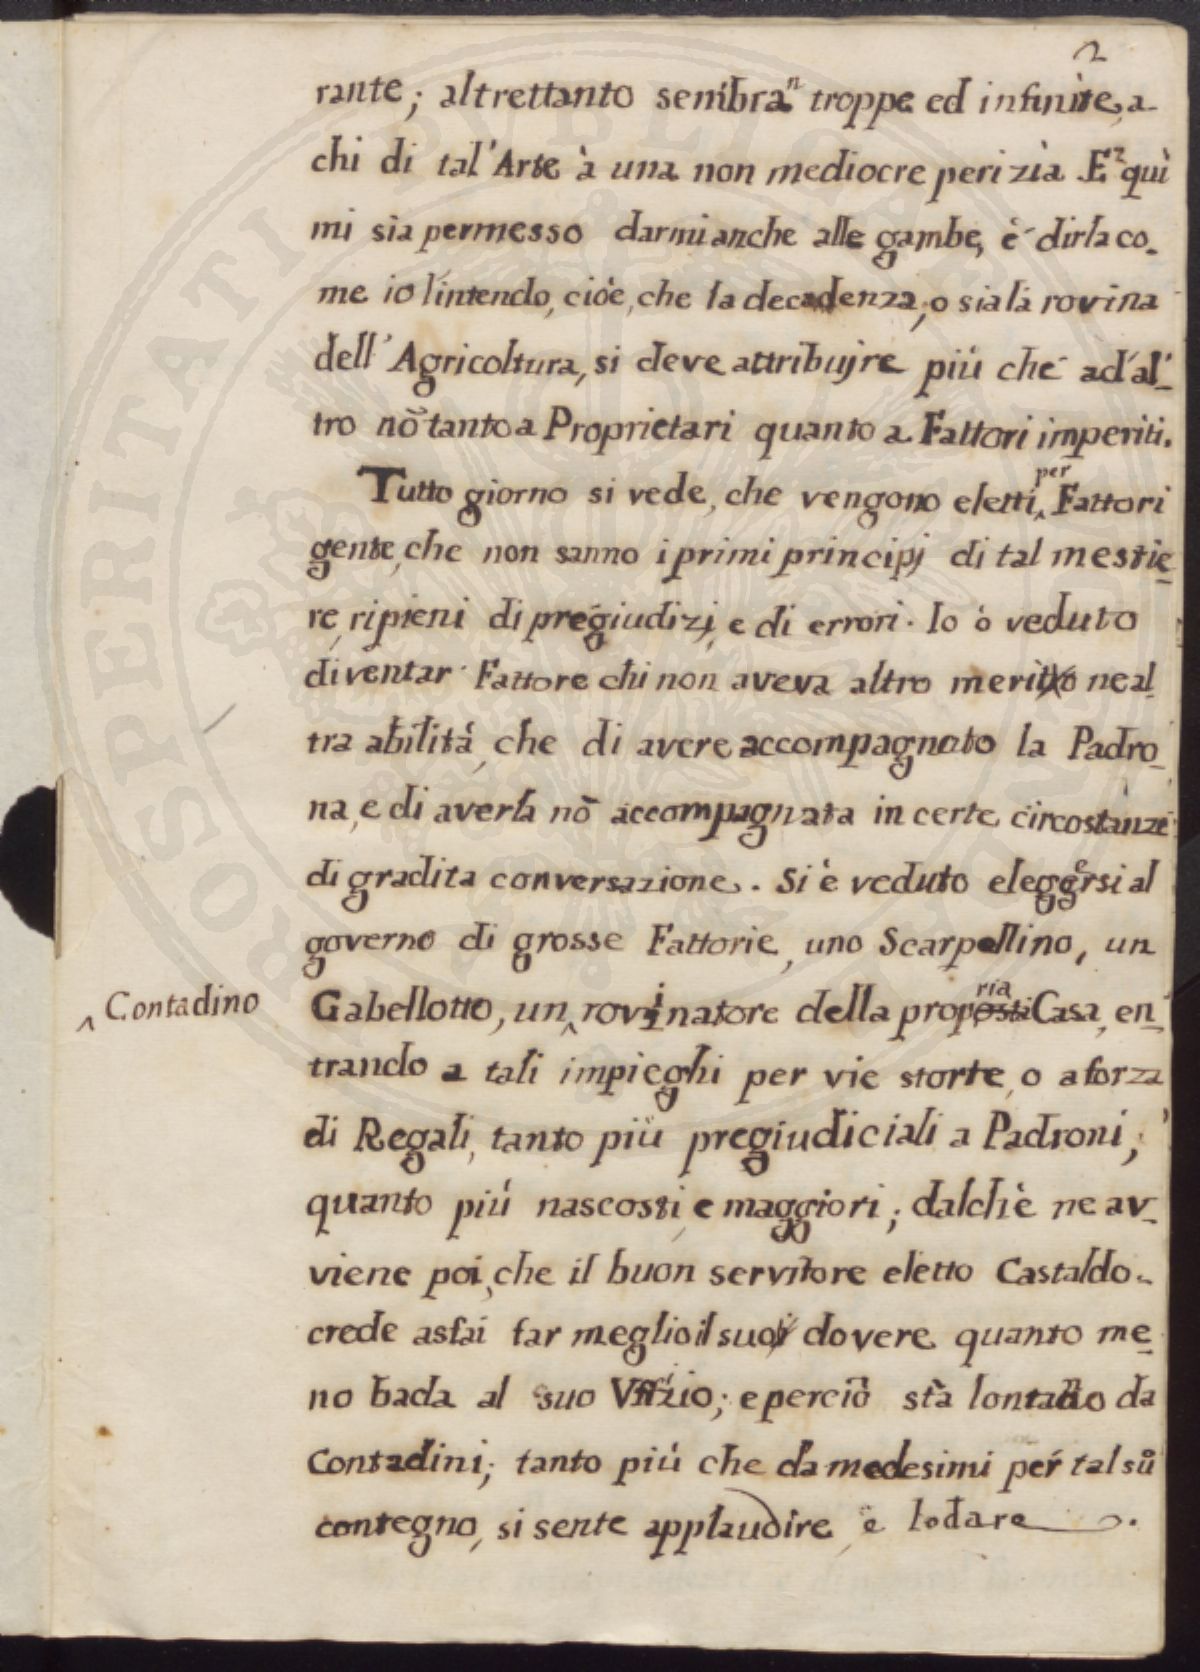 2
rante; altrettanto sembran troppe ed infinite, a
chi di tal' Arte à una non mediocre perizia. E quì
mi sia permesso darmi anche alle gambe, è dirla co-
me io l'intendo, cioè, che la decadenza, o sia la rovina
dell' Agricoltura, si deve attribujre più che ad' al-
tro nõ tanto a Proprietari quanto a Fattori imperiti.
Tutto giorno si vede, che vengono eletti per Fattori
gente, che non sanno i primi principj di tal mestie-
re, ripieni di pregiudizj, e di errori. Io ò veduto
diventar Fattore chi non aveva altro merito ne al-
tra abilità, che di avere accompagnato la Padro-
na, e di averla nõ accompagnata in certe circostanze
di gradita conversazione. Si è veduto eleggersi al
governo di grosse Fattorie, uno Scarpellino, un
Gabellotto, un ^ rovinatore della propria Casa, en-
^ Contadino
trando a tali impieghi per vie storte, o a forza
di Regali, tanto più pregiudiciali a Padroni,
quanto più nascosti, e maggiori; dalchè ne av-
viene poi, che il buon servitore eletto Castaldo
crede assai far meglio il suo dovere quanto me-
no bada al suo Uffizio; e perciò stà lontano da
Contadini; tanto più che da medesimi per tal suo
contegno, si sente applaudire, e lodare.
PROSPERITATI PUBLICAE